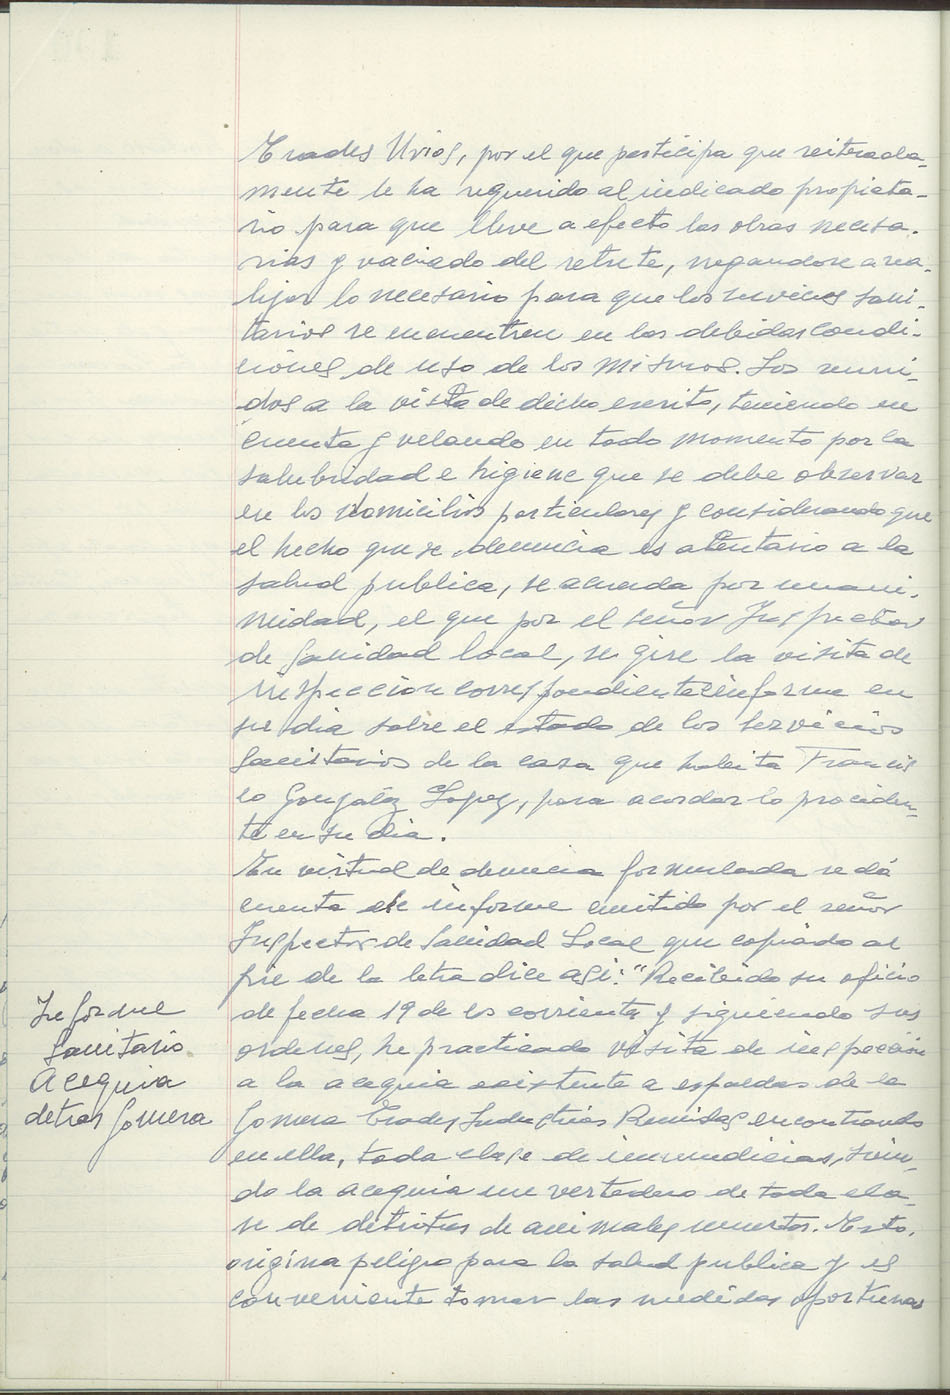 Erades Urios, por el que participa que reiterada-
mente le ha requerido al indicado propieta-
rio para que lleve a efecto las obras necesa-
rias y vaciado del retrete, negandose a rea-
lizar lo necesario para que los servicios sani-
tarios se encuentren en las debidas condi-
ciones de uso de los mismos. Los reuni-
dos a la vista de dicho escrito, teniendo en
cuenta y velando en todo momento por la
salubridad e higiene que se debe observar
en los domicilios particulares y considerando que
el hecho que se denuncia es atentario a la
salud publica, se acuerda por unani-
midad, el que por el señor Inspector
de Sanidad local, se gire la visita de
inspeccion correspondiente e informe en
su dia sobre el estado de los servicios
sanitarios de la casa que habita Francis
co Gonzalez Lopez, para acordar lo proceden-
te en su dia.
En virtud de denuncia formulada se dá
cuenta de informe emitido por el señor
Inspector de Sanidad Local que copiado al
pie de la letra dice asi: "Recibido su oficio
de fecha 19 de los corrientes y siguiendo sus
ordenes, he practicado visita de inspección
a la acequia existente a espaldas de la
Gomera Erades Industrias Reunidas encontrando
en ella, toda clase de inmundicias, sien-
do la acequia un vertedero de toda cla-
se de detritus de animales muertos. Esto,
origina peligro para la salud publica y es
conveniente tomar las medidas oportunas
Informe
Sanitario
Acequia
detras Gomera